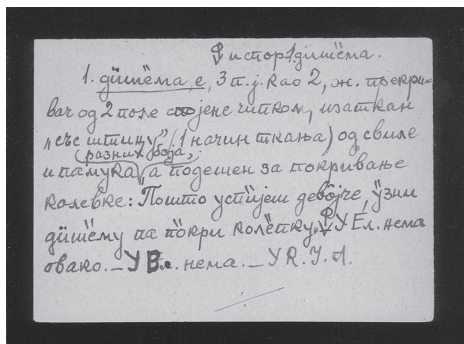 ф испор 1 дӥшёма.
1. дӥшёма е, 3 п. ј. као 2, ж. прекри-
вач од 2 поле спојене чипком, изаткан
„със штицу” (1 начин ткања) од свиле
(разних боја,
и памука, а подешен за покривање
колевке: Пошто успи̏јеш дево̂јче, у̏зми
дӥшёму па по̏кри коле̏пку. ф У Ел. нема
овако. – У Вл. нема. – У R. Ј. А.